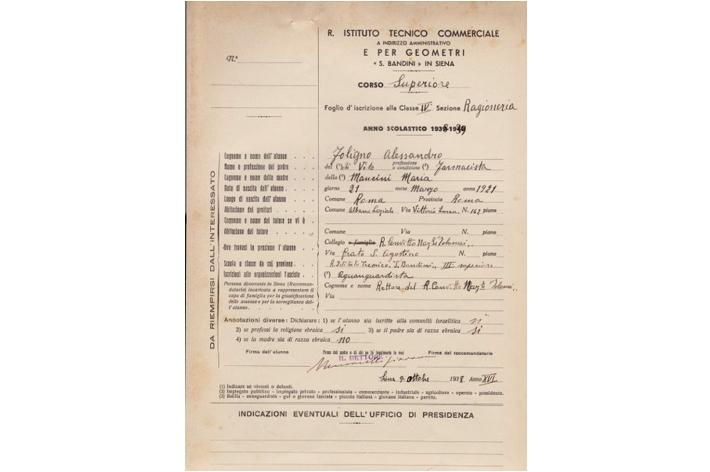 R. ISTITUTO TECNICO COMMERCIALE
A INDIRIZZO AMMINISTRATIVO
E PER GEOMETRI
« S. BANDINI » IN SIENA
N.°
CORSO Superiore
Foglio d'iscrizione alla Classe IV Sezione Ragioneria
ANNO SCOLASTICO 1938-1939
DA RIEMPIRSI DALL'INTERESSATO
Cognome e nome dell'alunno . . . Foligno Alessandro
Nome e professione del padre . . . del (¹) di Vito professione o condizione (²) Farmacista
Cognome e nome della madre . . . della (¹) Mancini Maria
Data di nascita dell'alunno . . . giorno 21 mese Marzo anno 1921
Luogo di nascita dell'alunno . . . Comune Roma Provincia Roma
Abitazione dei genitori . . . Comune Albano Laziale Via Vittorio N. piano
Cognome e nome del tutore se vi è
Abitazione del tutore . . . Comune Via N. piano
Collegio o famiglia R. Convitto Naz. Tolomei
Dove trovasi la pensione l'alunno . . Via Prato S. Agostino
Scuola e classe da cui proviene . . R. Istituto Tecnico S. Bandini III superiore
Iscrizioni alle organizzazioni fasciste . (³) Avanguardista
Persona dimorante in Siena (Raccomandatario) incaricata a rappresentare il capo di famiglia per la giustificazione delle assenze e per la sorveglianza dell'alunno. Cognome e nome Rettore del R. Convitto Naz. Tolomei
Via
Annotazioni diverse: Dichiarare: 1) se l'alunno sia iscritto alla comunità israelitica si
2) se professi la religione ebraica si 3) se il padre sia di razza ebraica si
4) se la madre sia di razza ebraica no
Firma dell'alunno Firma del padre o di chi ne fa legalmente le veci Firma del raccomandatario
IL RETTORE
Siena 9 ottobre 1938 Anno XVI
(1) Indicare se viventi o defunti.
(2) Impiegato pubblico - impiegato privato - professionista - commerciante - industriale - agricoltore - operaio - possidente.
(3) Balilla - avanguardista - guf o giovane fascista - piccola italiana - giovane italiana - partito.
INDICAZIONI EVENTUALI DELL'UFFICIO DI PRESIDENZA